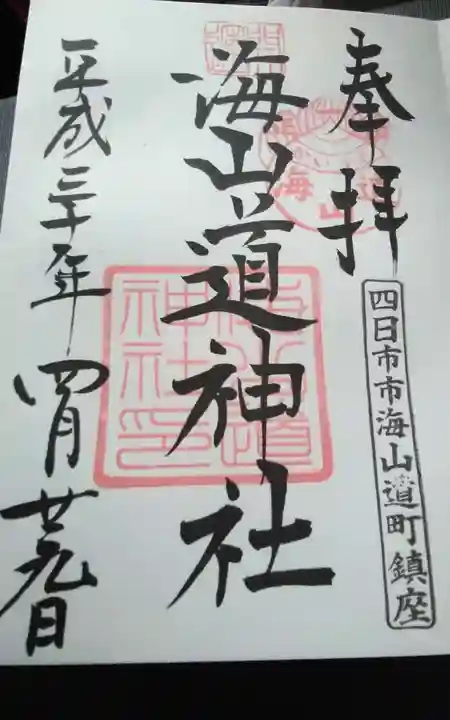 奉拝
四日市市海山道町鎮座
海山道神社
海山道神社印
平成三十年四月廿九日